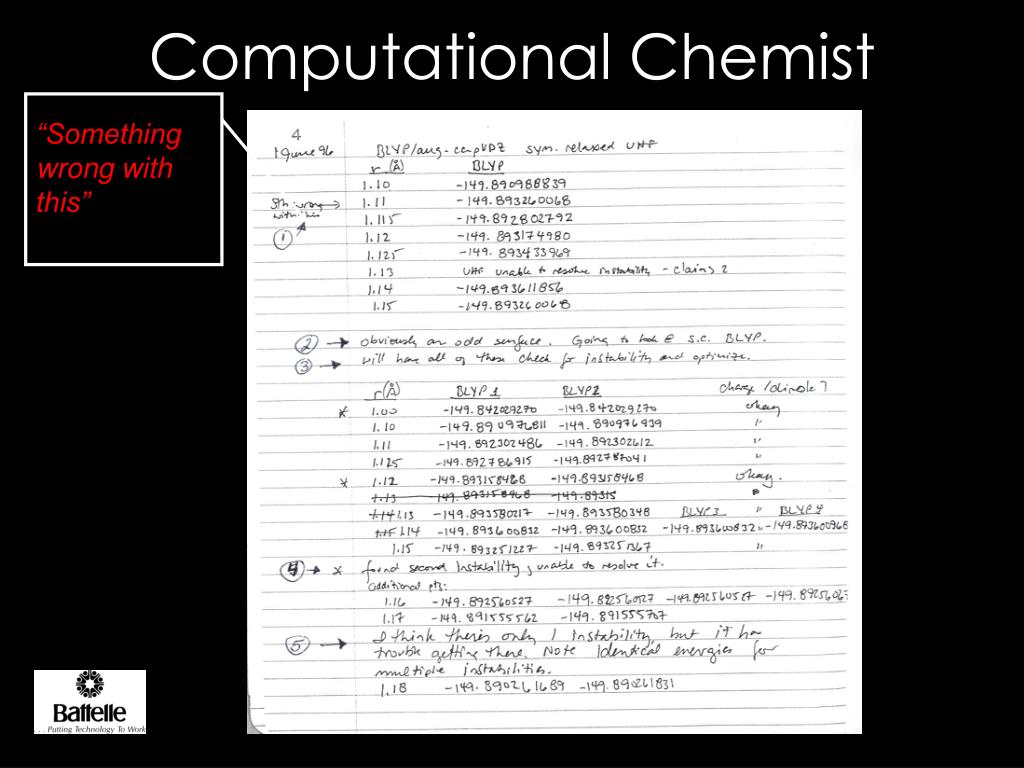 Computational Chemist
“Something
wrong with
this”
4
1 June 96 BLYP/aug-ccpVDZ sym. relaxed UHF
r (Å) BLYP
1.10 -149.890988839
Sth. wrong → 1.11 -149.893260068
with this
1.115 -149.892802792
① 1.12 -149.893174980
1.125 -149.893433969
1.13 UHF unable to resolve instability - claims 2
1.14 -149.893611856
1.15 -149.893260068
② → obviously an odd surface. Going to look @ s.c. BLYP.
③ → will have all of these check for instability and optimize.
r(Å) BLYP1 BLYP2 charge/dipole?
* 1.00 -149.842029270 -149.842029270 okay
1.10 -149.890976811 -149.890976939 "
1.11 -149.892302486 -149.892302612 "
1.125 -149.892786915 -149.892787041 "
* 1.12 -149.893158468 -149.893158468 okay.
1.13 149.893158468 -149.89315
1.14 1.13 -149.893580217 -149.893580348 BLYP3 " BLYP4
1.15 1.14 -149.893600832 -149.893600832 -149.893600832 " -149.893600968
1.15 -149.893251227 -149.893251367 "
④ → * found second instability, unable to resolve it.
additional pts:
1.16 -149.892560527 -149.892560527 -149.892560527 -149.892560
1.17 -149.891555562 -149.891555707
⑤ → I think there's only 1 instability, but it has
trouble getting there. Note identical energies for
multiple instabilities.
1.18 -149.890261689 -149.890261831
Battelle
. . . Putting Technology To Work